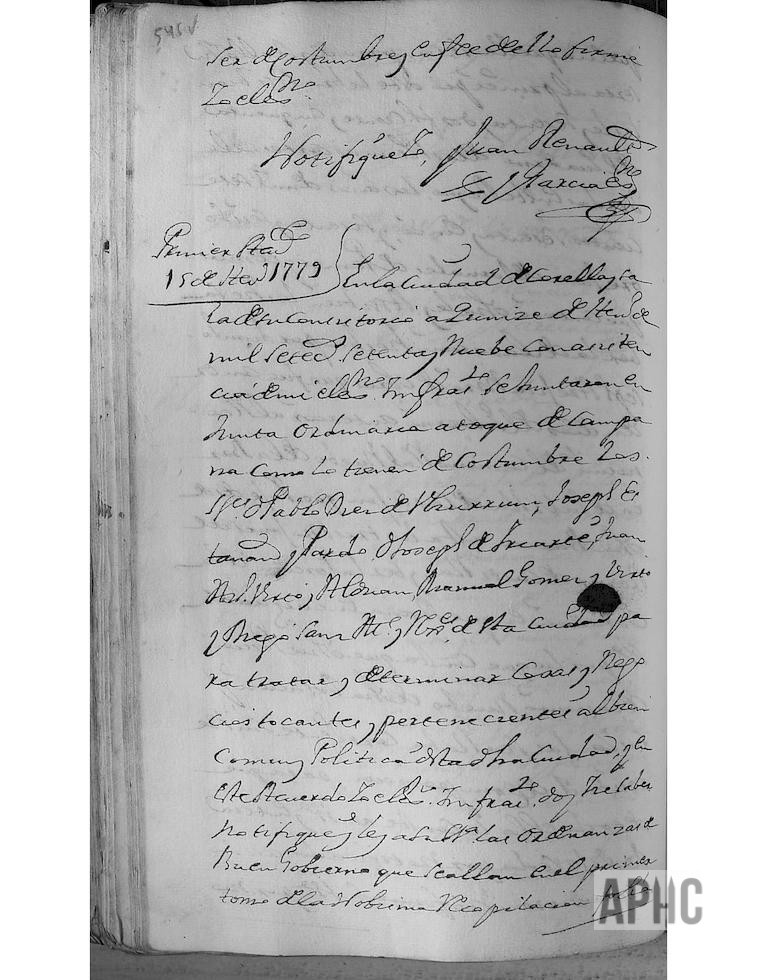 545v
ser de Costumbre, y en fee de ello firme
Yo el ess.no
Notifique lo, Juan Renault
y Garcia ess.no
Primer Acu.do
15 de Hen.o 1779
En la Ciudad de Corella, y sa
la de su Consistorio a Quinze de Hen.o de
mil Setec.s Setenta, y Nuebe con asisten
cia de mi el ess.no Infras.to Se Juntaron en
Junta Ordinaria a toque de Campa
na como lo tienen de Costumbre Los
S.res d.n Pablo Diez de Joseph
y Pardo, d.n Joseph de Iriarte, Juan
Virto, Adrian Manuel Gomez, y Virto
y Diego Sanz Al.e y Rex.es de esta Ciudad pa
ra tratar, y determinar Cosas, y Nego
cios tocantes, y pertenecientes al bien
Comun, y Politica de esta dha Ciudad, y en
Este Acuerdo Yo el ess.no Infras.to doy Fee haber
Notifique, y ley a su S.ria las Ordenanzas de
Buen Gobierno que se allan en el primer
tomo de la Nobisima Recopilacion
APHC